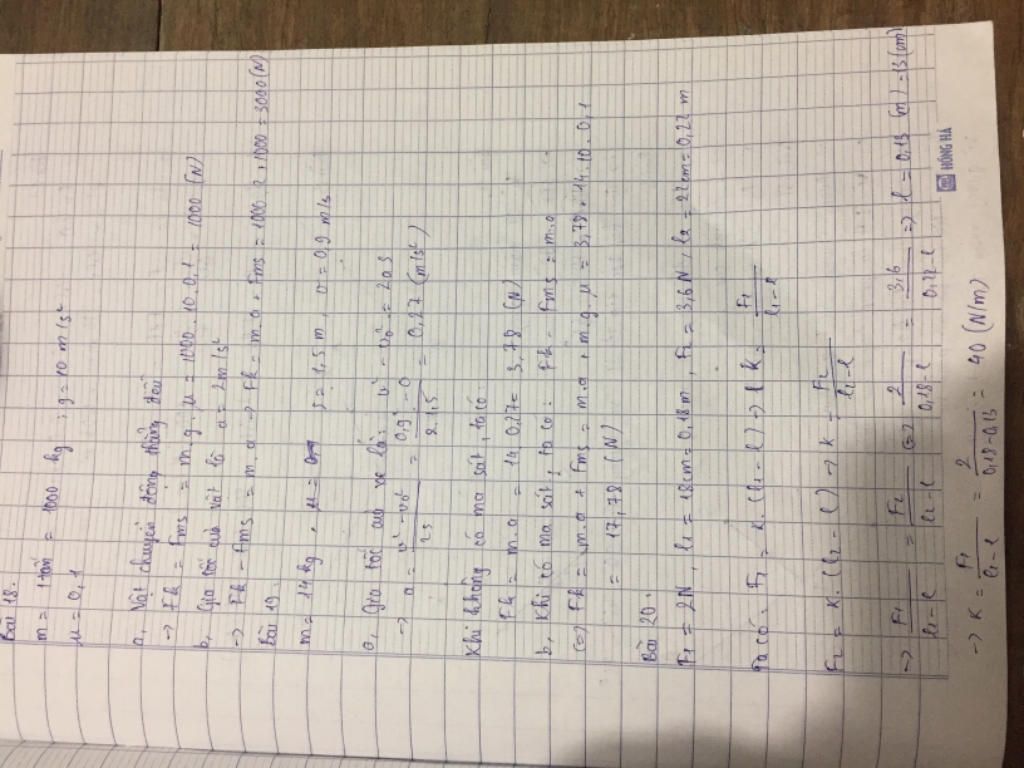 Bài 18.
m = 1 tấn = 1000 kg ; g = 10 m/s²
μ = 0,1
a, Vật chuyển động thẳng đều
→ Fk = Fms = m.g.μ = 1000.10.0,1 = 1000 (N)
b, Gia tốc của vật là a = 2m/s²
→ Fk - Fms = m.a → Fk = m.a + Fms = 1000.2+1000 = 3000(N)
Bài 19.
m = 14 kg , s = 1,5 m , v = 0,9 m/s
a, Gia tốc của xe là: v² - v₀² = 2as
→ a = (v² - v₀²)/2s = (0,9² - 0)/2.1,5 = 0,27 (m/s²)
Khi không có ma sát, ta có:
Fk = m.a = 14.0,27 = 3,78 (N)
b, Khi có ma sát, ta có: Fk - Fms = m.a
(=) Fk = m.a + Fms = m.a + m.g.μ = 3,78 + 14.10.0,1
= 17,78 (N)
Bài 20.
F₁ = 2N , l₁ = 18cm = 0,18m , F₂ = 3,6N , l₂ = 22cm = 0,22 m
Ta có: F₁ = k.(l₁ - l) → k = F₁/(l₁ - l)
F₂ = k.(l₂ - l) → k = F₂/(l₂ - l)
→ F₁/(l₁ - l) = F₂/(l₂ - l) (=) 2/(0,18 - l) = 3,6/(0,22 - l) => l = 0,13 (m) = 13(cm)
→ K = F₁/(l₁ - l) = 2/(0,18 - 0,13) = 40 (N/m)
HỒNG HÀ